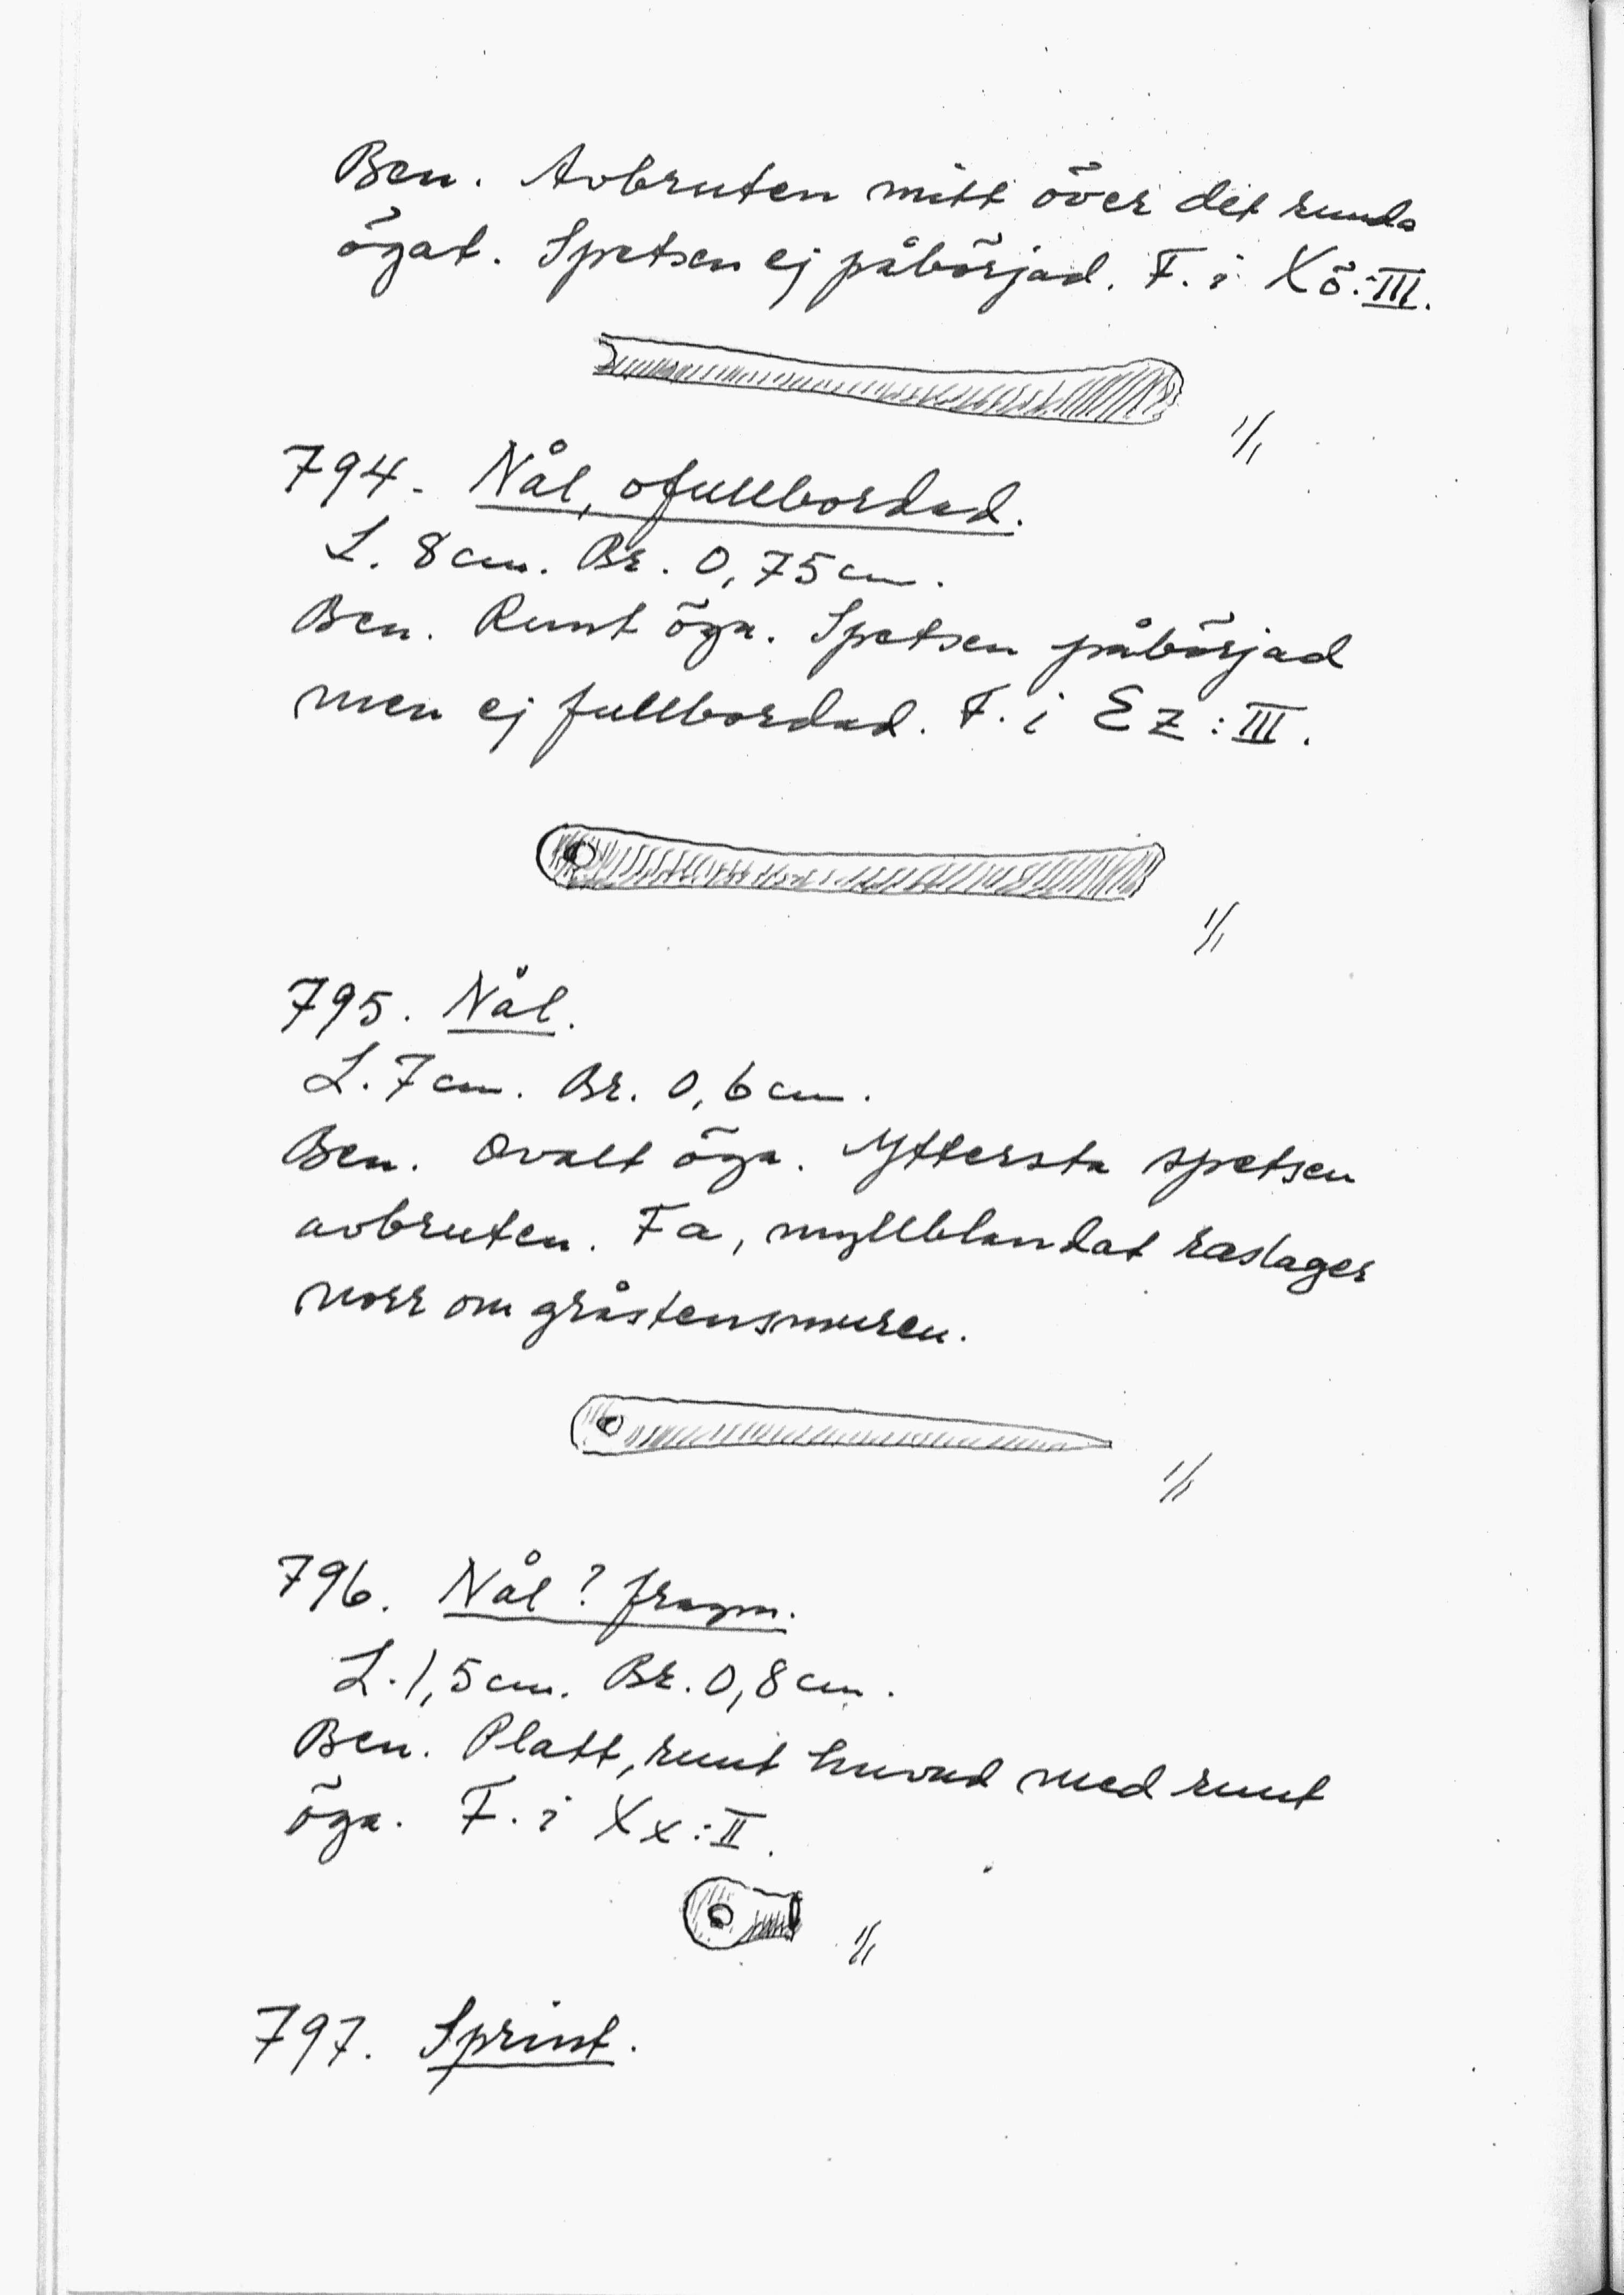 Ben. Avbruten mitt över det runda
ögat. Spetsen ej påbörjad. F. i Xö:III.
1/1
794. Nål, ofullbordad.
L. 8 cm. Br. 0,75 cm.
Ben. Runt öga. Spetsen påbörjad
men ej fullbordad. F. i Ez:III.
1/1
795. Nål.
L. 7 cm. Br. 0,6 cm.
Ben. Ovalt öga. Yttersta spetsen
avbruten. Fa, myllblandat raslager
norr om gråstensmuren.
1/1
796. Nål? fragm.
L. 1,5 cm. Br. 0,8 cm.
Ben. Platt, runt huvud med runt
öga. F. i Xx:II.
1/1
797. Sprint.